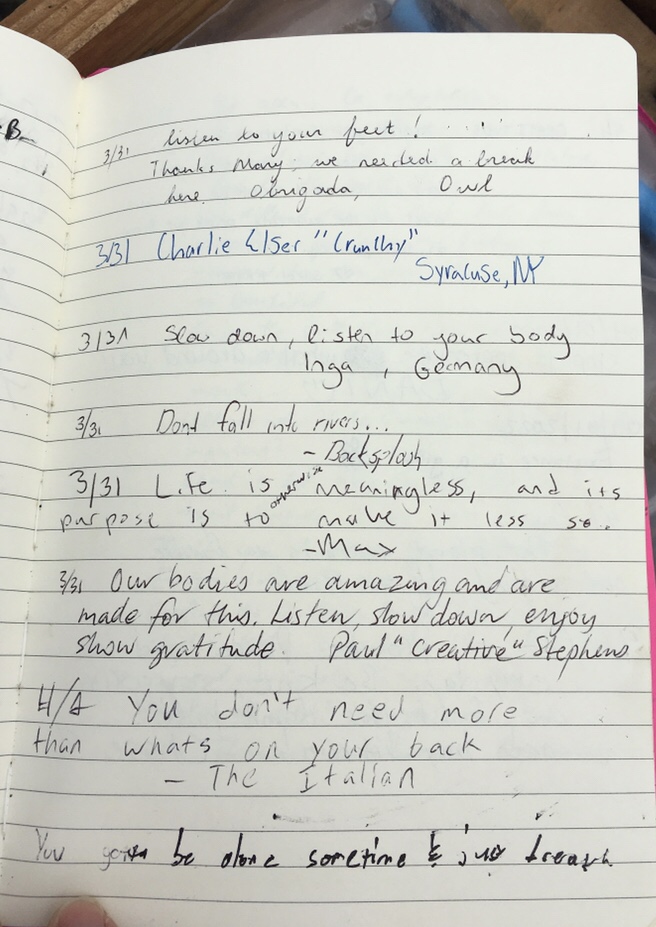 B
3/31 listen to your feet!
Thanks Mary; we needed a break
here. Obrigada, Owl
3/31 Charlie Elser "Crunchy"
Syracuse, NY
3/31 Slow down, listen to your body
Inga, Germany
3/31 Dont fall into rivers...
- Backsplash
3/31 Life is otherwise meaningless, and its
purpose is to make it less so.
- Max
3/31 Our bodies are amazing and are
made for this. Listen, slow down, enjoy
show gratitude. Paul "Creative" Stephens
4/1 You don't need more
than whats on your back
- The Italian
You gotta be alone sometime & just breath